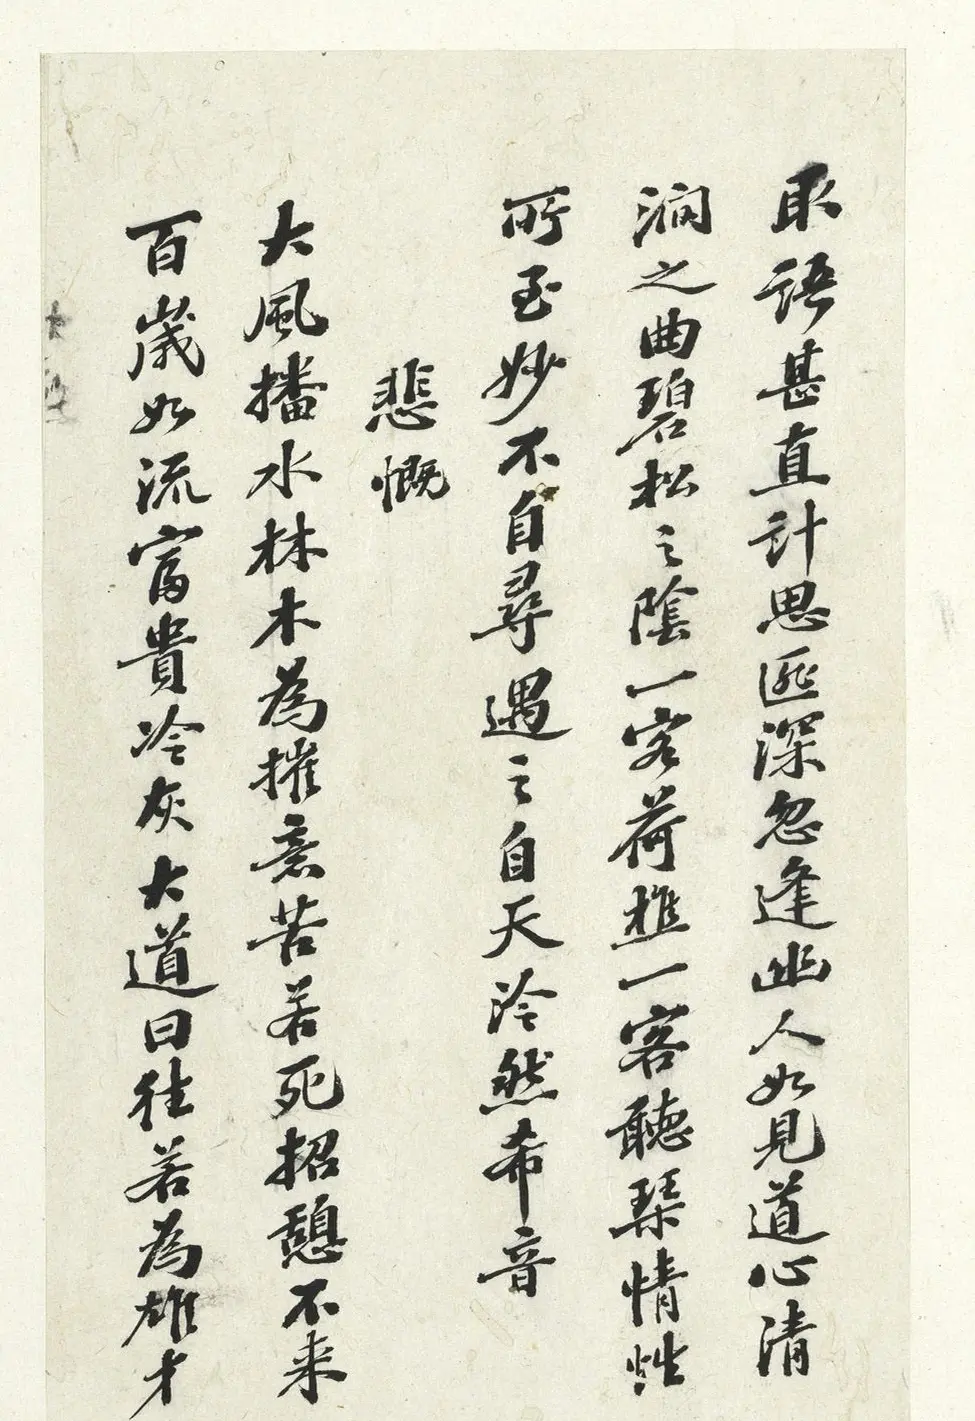 取語甚直計思匪深忽逢幽人如見道心清
澗之曲碧松之陰一客荷樵一客聽琴情性
所至妙不自尋遇之自天泠然希音
悲慨
大風捲水林木為摧意苦若死招憩不来
百歲如流富貴冷灰大道曰往若為雄才